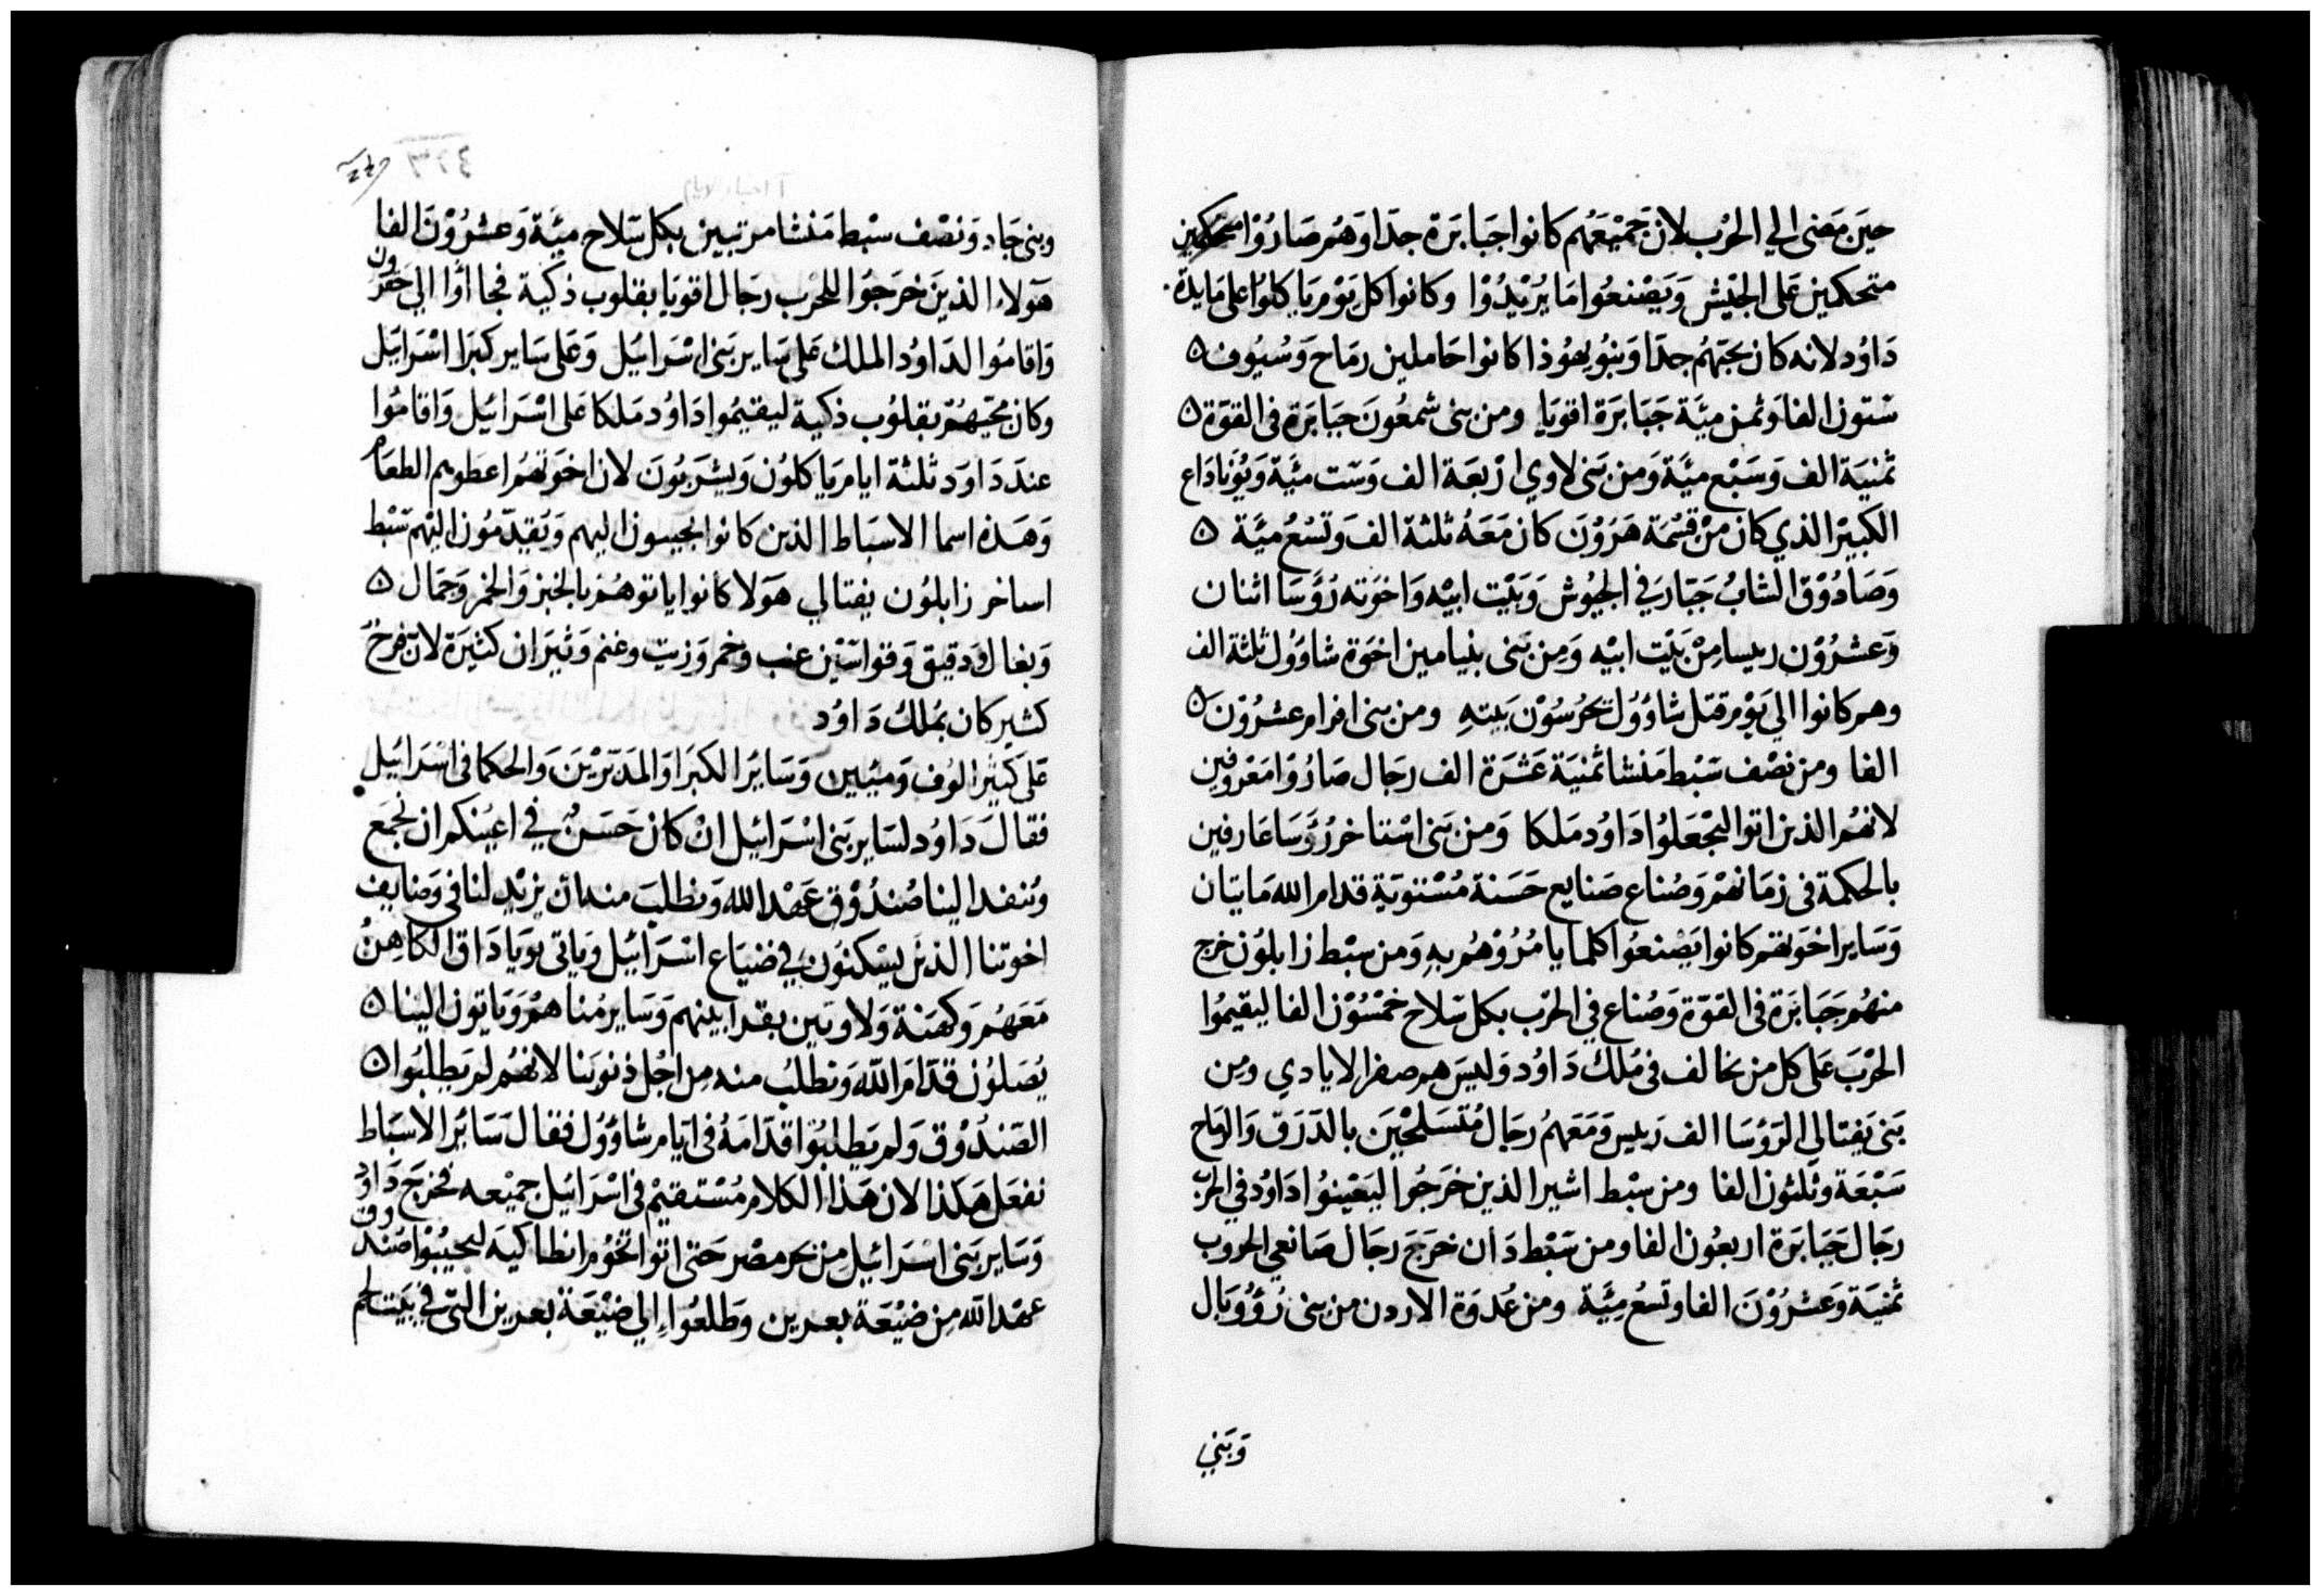 حينَ مَضى الي الحَرْب لانَ جَميْعَهُم كانوا جَبابَرَة جدَا وَهُم صَارُوْا متحكمين
متحكمين عَلى الجَيْش وَيَصْنعُوا مَا يُرْيدُوْا وكانوا كل يَوْم يَاكلوْا على مَايدة
دَاوُد لانه كان يحبّهُم جدَا وَبنُو يهُوُذا كانوا حَاملين رمَاح وَسُيُوف ۵
ستون الفا وَثمن ميَّة جَبَابَرَة اقويَا ومن بنى شمعُونَ جَبَابَرَة فى القوّة ۵
ثمنيَة الف وَسَبْع ميَّة وَمن بَنى لاوي ارْبعَة الف وَستّ ميَّة وَيُوَيَادَاع
الكبيْر الذي كانَ منْ قسْمَة هَرُوْنَ كان مَعَهُ ثلثة الف وَتسْعُ ميَّة ۵
وَصَادُوْق الشابُ جَبّارَ في الجيُوش وَبَيْت ابيْه وَاخوَته رُؤَسَا اثنان
وَعشرُوْن رييسا مِنْ بَيْت ابيْه وَمِن بَنى بنيَامين اخوَة شاوُوْل ثلثة الف
وهم كانوا الي يَوْم قتل شاوُوُل يَحْرُسُوْن بَيته ومن بنى افرام عشرُوْن ۵
الفا ومن نصْف سَبْط مَنشا ثمنيَة عَشَرَة الف رجَال صَارُوا مَعرُوفين
لانهُم الذين اتوا ليجْعَلُوا دَاوُد مَلكا وَمن بَنى اسْتاخر رُؤسَا عَارفين
بالحكمة فى زمَانهمْ وَصُناع صَنايع حَسَنة مُسْتويَة قدام الله مَايتان
وَسَاير اخوَتهم كانوا يَصْنعُوا كلما يامُرُوْهُم بهِ وَمن سبْط زابلوُن خرج
منهُم جَبَابَرَة فى القوّة وَصُناع في الحَرْب بكل سَلاح خمْسُوْن الفا ليقيمُوا
الحْرْبَ عَلى كل من يخالف فى مُلك دَاوُد وَليسَ هم صفر الايادي ومِن
بَنى يَفتالي الرُؤُسَا الف رَييس وَمَعَهُم رجَال مُتَسَلحْينَ بالدَرَق وَالرمَاح
سَبْعَة وَثلثون الفا ومن سبْط اشير الذين خرَجُوا ليَعْينُوا دَاوُد في الحرْب
رجَال جَبَابَرَة اربعُون الفا ومن سَبْط دَان خرَجَ رجَال صَانعي الحروب
ثمنيَة وَعشرُوْنَ الفا وتسعُ مِيَّة ومن عُدوَة الاردن من بنى رُؤُوبَال
وَبَني
وبنى جَاد وَنصْف سبْط مَنشا مرتبين بكل سَلاح ميَّة وَعشرُوْنَ الفا
هَولاء الذينَ خرَجُوا للحْرب رجَال اقويَا بقلوب ذكيَة فجاأوا الي حَبرُون
وَاقامُوا لدَاوُد الملك عَلى سَاير بَنى اسْرَاييل وَعَلى سَاير كبرَا اسْرَاييل
وكان محبّهُم بقلوُب ذكية ليقيمُوا دَاوُد مَلكا عَلى اسْرَاييل وَاقامُوا
عندَ دَاوَد ثلثة ايام يَاكلوُن وَيشرَبُونَ لان اخوَتهُم اعطوهم الطعَام
وَهَذه اسما الاسبَاط الذين كانوا يجيبون اليهم وَيُقدّمُون اليْهم سَبْط
اساخر زابلوُن يفتالي هَولا كانوا ياتوهُم بالخبز وَالخمر وَجمَال ۵
وَبغال وَدقيق وَقواسَيْن عنب وَخمر وَزيت وغنم وَثيرَان كثيرَة لان فرح
كثير كان بمُلك دَاوُد
عَلى كثير الوُف وَميئين وَسَاير الكبَرَا وَالمدَبّرَيْنَ وَالحكما فى اسْرَاييل
فقالَ دَاوُد لسَاير بَنى اسْرَاييل انْ كان حَسَنٌ في اعيُنكم ان نجمَع
وَننفد الينا صُندُوْق عَهْد الله وَنطلبَ منه ان يزيْد لنا فى وَضايف
اخوتنا الذينَ يسْكنوُن في ضيَاع اسْرَاييل وَياتى يوَيادَاق الكاهنُ
مَعَهُم وَكهَنة وَلاويين بقدَابينهم وَسَاير مُناهُم وَيَاتون الينا ۵
يُصَلوُن قدّامَ اللّه وَنطلبُ منه مِن اجْل ذنوبَنا لانهُم لم يَطلبُوا ۵
الصّندُوْق وَلم يَطلبُوْا قدّامَهُ فى ايّام شاوُوُل فقالَ سَايَر الاسبَاط
نفعَل هَكذا لان هَذا الكلام مُسْتقيمْ فى اسْرَاييل جمْيعه فخرَجَ دَاوُد
وَسَاير بَنى اسْرَاييل مِن نحر مصْر حَتى اتوا تخوُم انطاكيَه ليجيبُوْا صُندوق
عهْد اللّه مِن ضيْعَة بعرين وطَلعُوا الي ضيْعَة بعرين التى في بَيتَ لحم